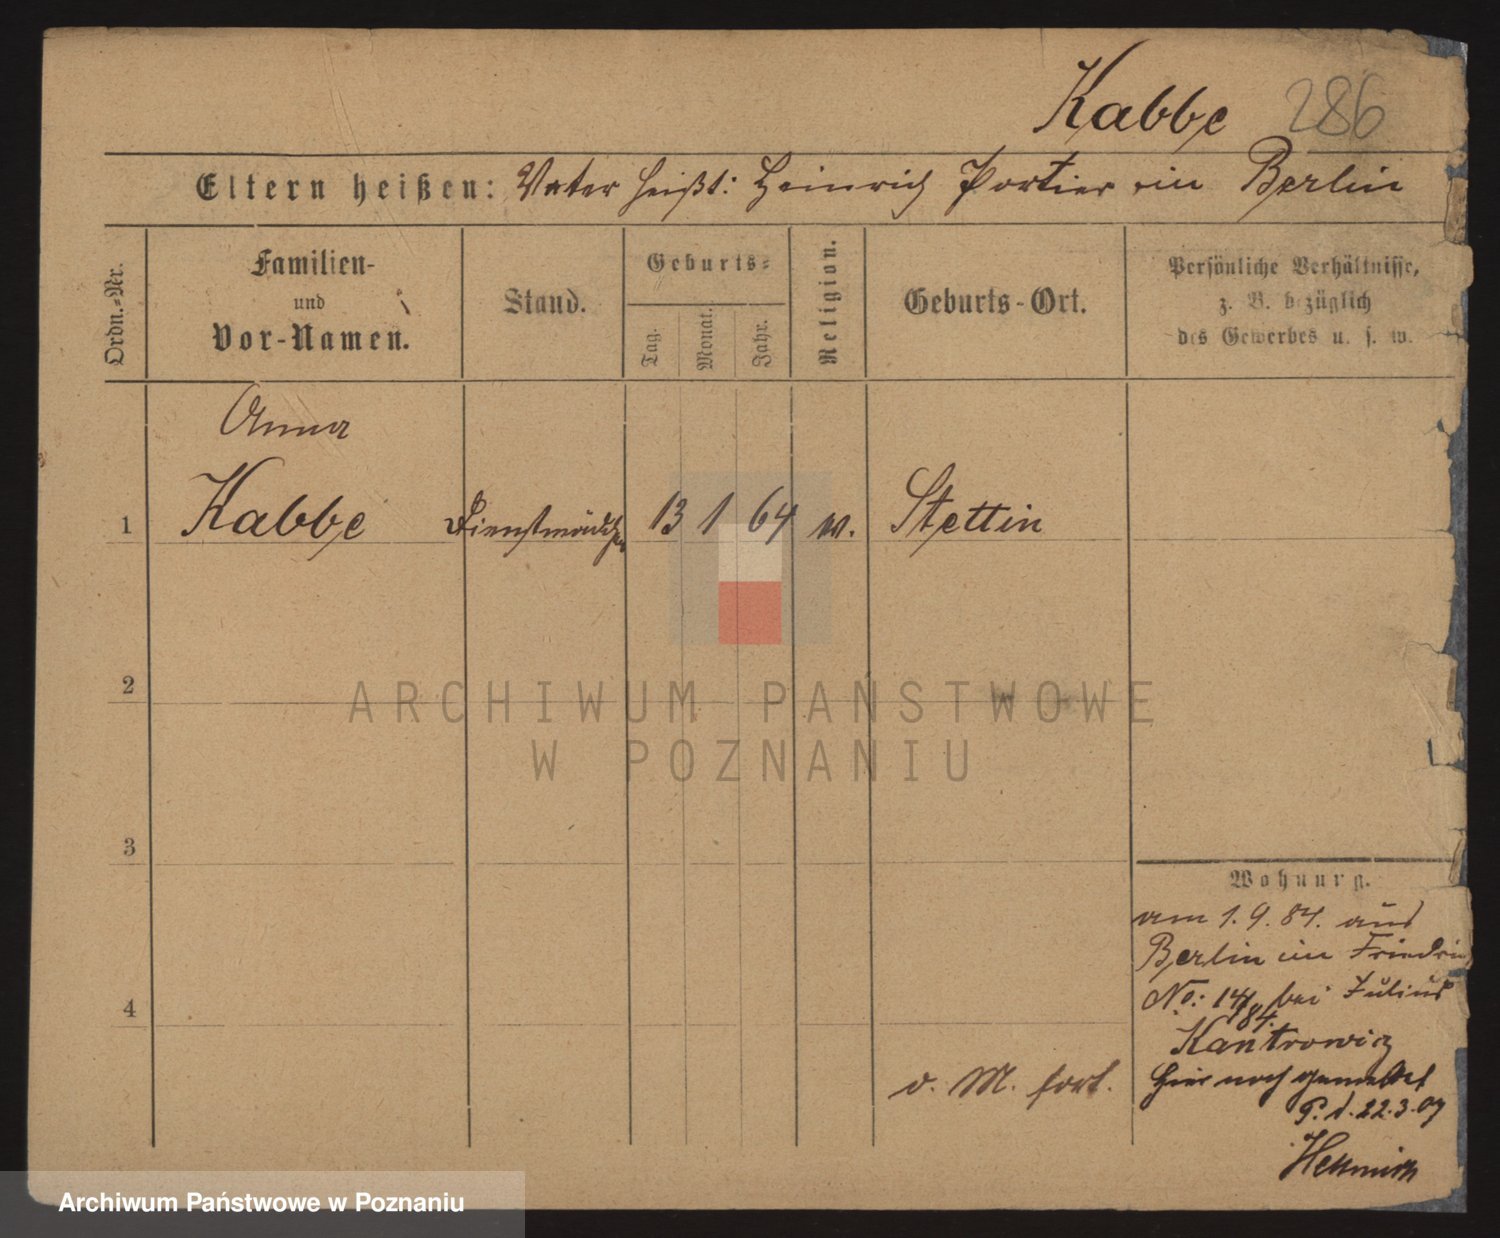 Kabbe 286
Eltern heißen: Vater heißt: Heinrich Portier in Berlin
Ordn.-Nr.
Familien-
und
Vor-Namen.
Stand.
Geburts-
Tag.
Monat.
Jahr.
Religion.
Geburts-Ort.
Persönliche Verhältnisse,
z. B. bezüglich
des Gewerbes u. s. w.
Anna
1 Kabbe Dienstmädchen 13 1 64 Stettin
2
ARCHIWUM PAŃSTWOWE
W POZNANIU
3
Wohnung.
am 1.9.84. aus
Berlin in
No: bei Julius
4
Kantrowicz
v. M. fort.
hier noch gemeldet
P. d. 22.3.07
Archiwum Państwowe w Poznaniu